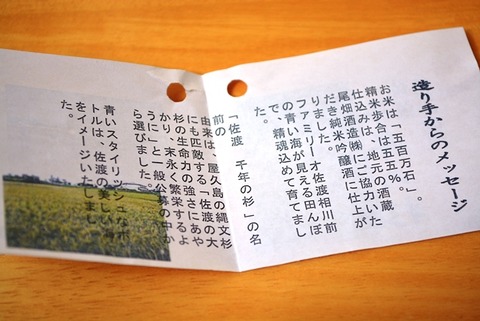 造り手からのメッセージ
お米は「五百万石」。
精米歩合は五五%。
仕込みは、地元の酒蔵
尾畑酒造㈱にご協力いた
だき純米吟醸酒に仕上が
りました。
ファミリーオ佐渡相川前
の青い海が見える田んぼ
で、精魂込めて育てまし
た。
「佐渡　千年の杉」の名
前の
由来は、屋久島の縄文杉
にも匹敵する「佐渡の大
杉の生命力の強さにあや
かり、末永く繁栄するよ
うに」と一般公募の中か
ら選びました。
青いスタイリッシュなボ
トルは、佐渡の美しい海
をイメージいたしまし
た。